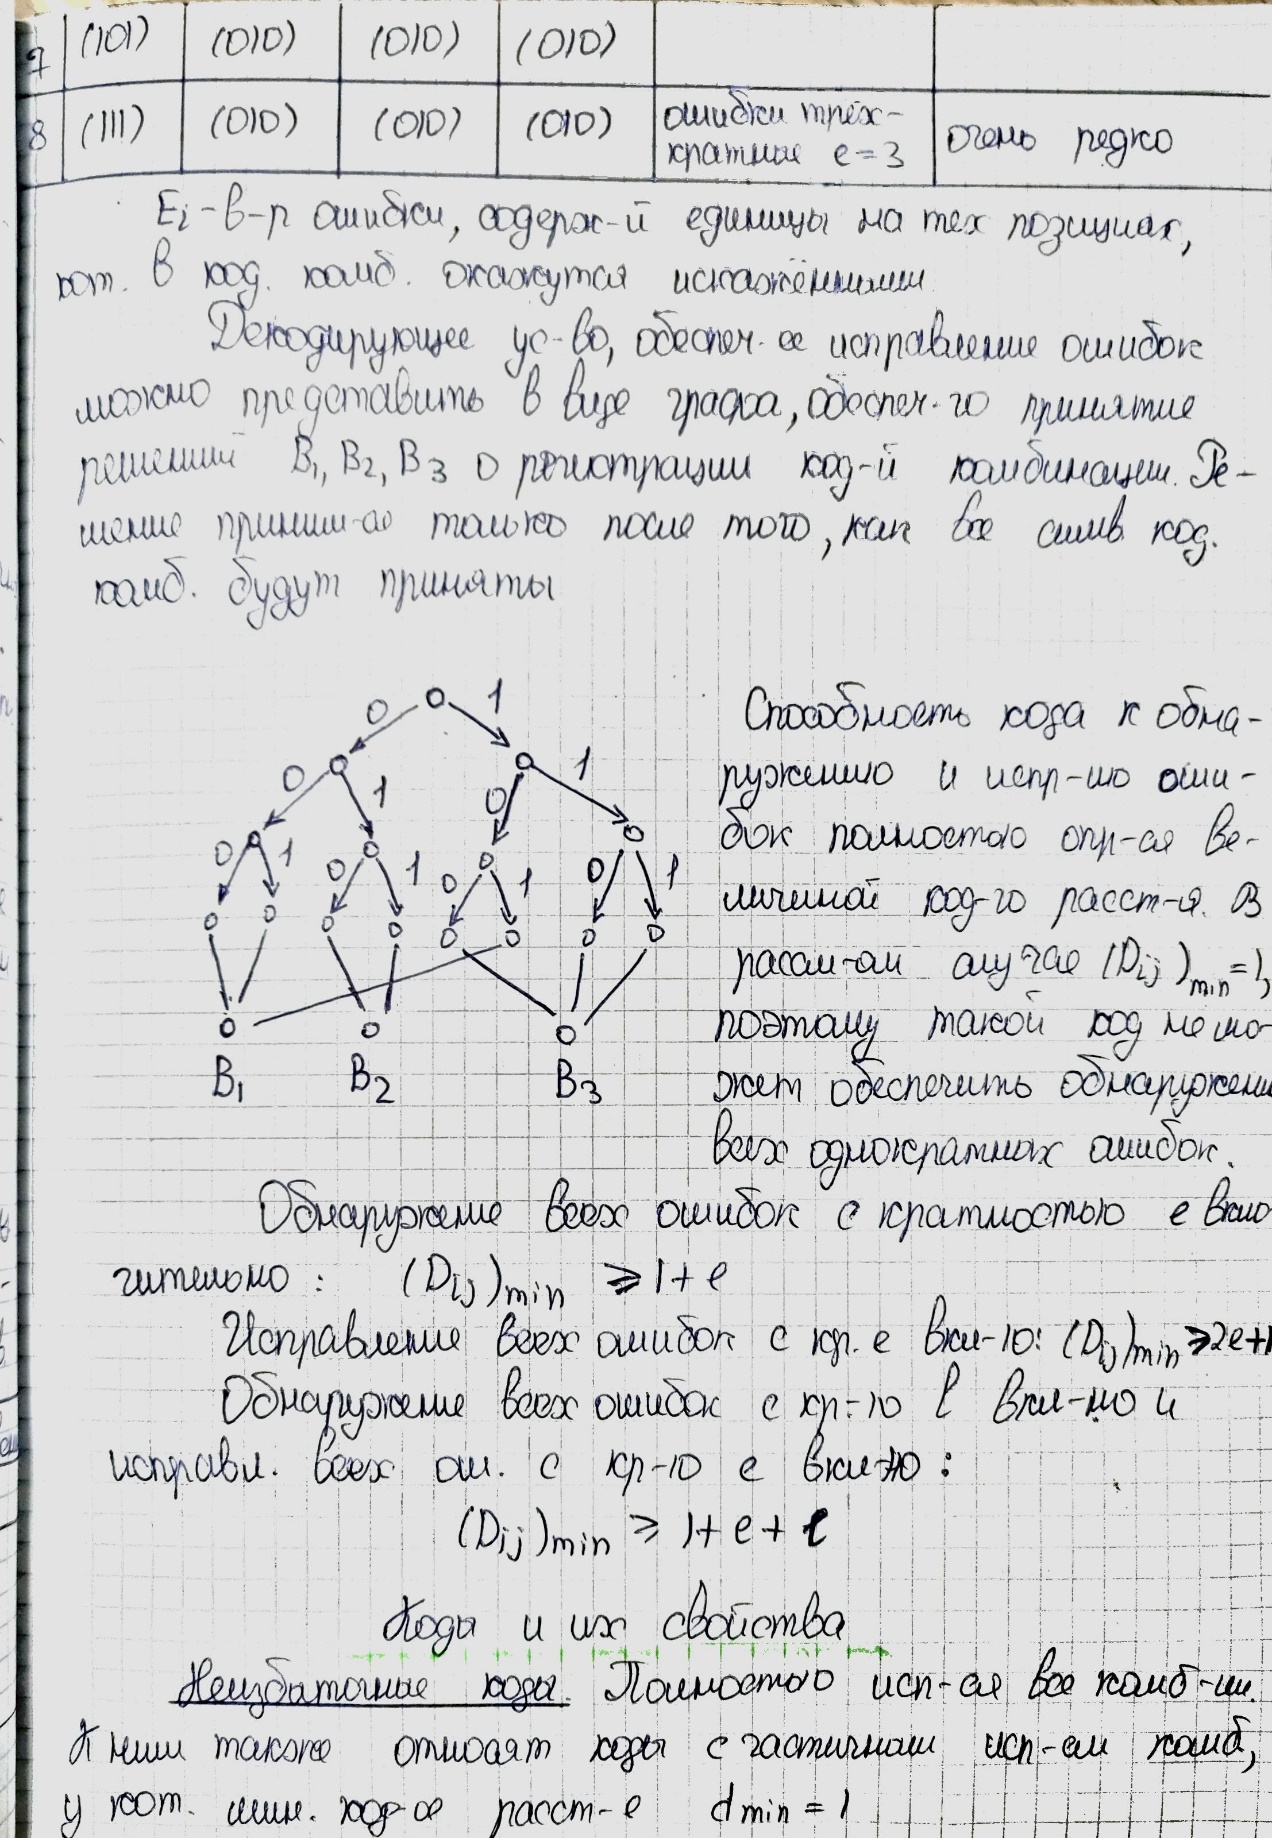 7 (101) (010) (010) (010)
8 (111) (010) (010) (010) ошибки трёх-
кратные e=3 очень редко
Ei-в-р ошибки, содерж-й единицы на тех позициях,
кот. в код. комб. окажутся искажёнными
Декодирующее ус-во, обеспеч-ее исправление ошибок
можно представить в виде графа, обеспеч-го принятие
решений B1, B2, B3 о регистрации код-й комбинации. Ре-
шение приним-ся только после того, как все симв. код.
комб. будут приняты
0 1
0 1 0 1
0 1 0 1 0 1 0 1
B1 B2 B3
Способность кода к обна-
ружению и испр-ию оши-
бок полностью опр-ся ве-
личиной код-го расст-я. В
рассм-ом случае (Dij)min=1,
поэтому такой код не мо-
жет обеспечить обнаружени
всех однократных ошибок.
Обнаружение всех ошибок с кратностью e вклю
чительно: (Dij)min ⩾ 1+e
Исправление всех ошибок с кр. e вкл-ю: (Dij)min ⩾ 2e+1
Обнаружение всех ошибок с кр-ю l вкл-но и
исправл. всех ош. с кр-ю e вкл-но:
(Dij)min ⩾ 1+e+l
Коды и их свойства
Неизбыточные коды. Полностью исп-ся все комб-ии.
К ним также относят коды с частичным исп-ем комб,
у кот. мин. код-ое расст-е dmin=1